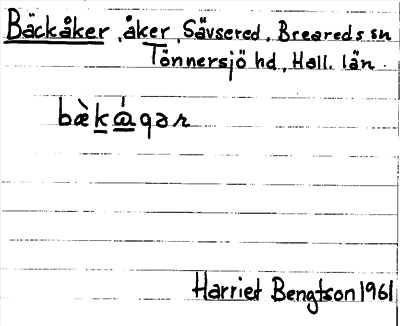 Bäckåker, åker, Sävsered, Breareds sn
Tönnersjö hd, Hall. län.
bæ̀kå̀gər
Harriet Bengtson 1961